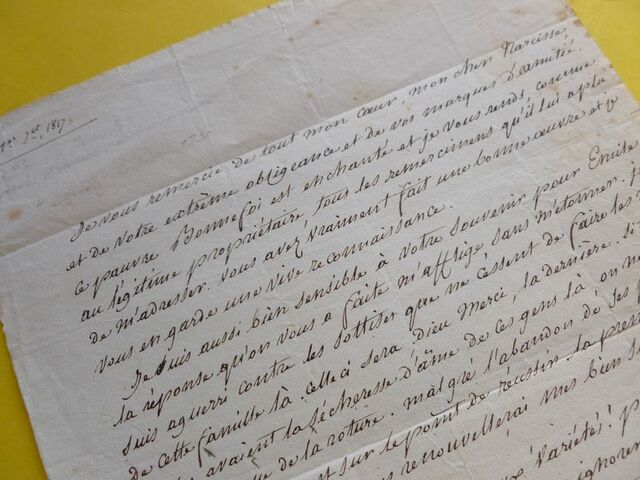 7bre 1817.
Je vous remercie de tout mon cœur, mon cher Narcisse,
et de votre extrême obligeance et de vos marques d'amitié.
ce pauvre Bonnefoi est enchanté et je vous rends, comme
au légitime propriétaire tous les remerciments qu'il lui a plu
de m'adresser. vous avez vraiment fait une bonne œuvre et je
vous en garde une vive reconnaissance.
Je suis aussi bien sensible à votre souvenir pour Emile
la réponse qu'on vous a faite m'afflige sans m'étonner. je
suis aguerri contre les sottises que ne cessent de faire les
de cette famille là. celle ci sera, Dieu merci, la dernière. si
avaient la sécheresse d'âme de ces gens là on ne
de la roture. malgré l'abandon de ses
est sur le point de réussir. la
renouvellerai mes bien
Variétés!
ignorent